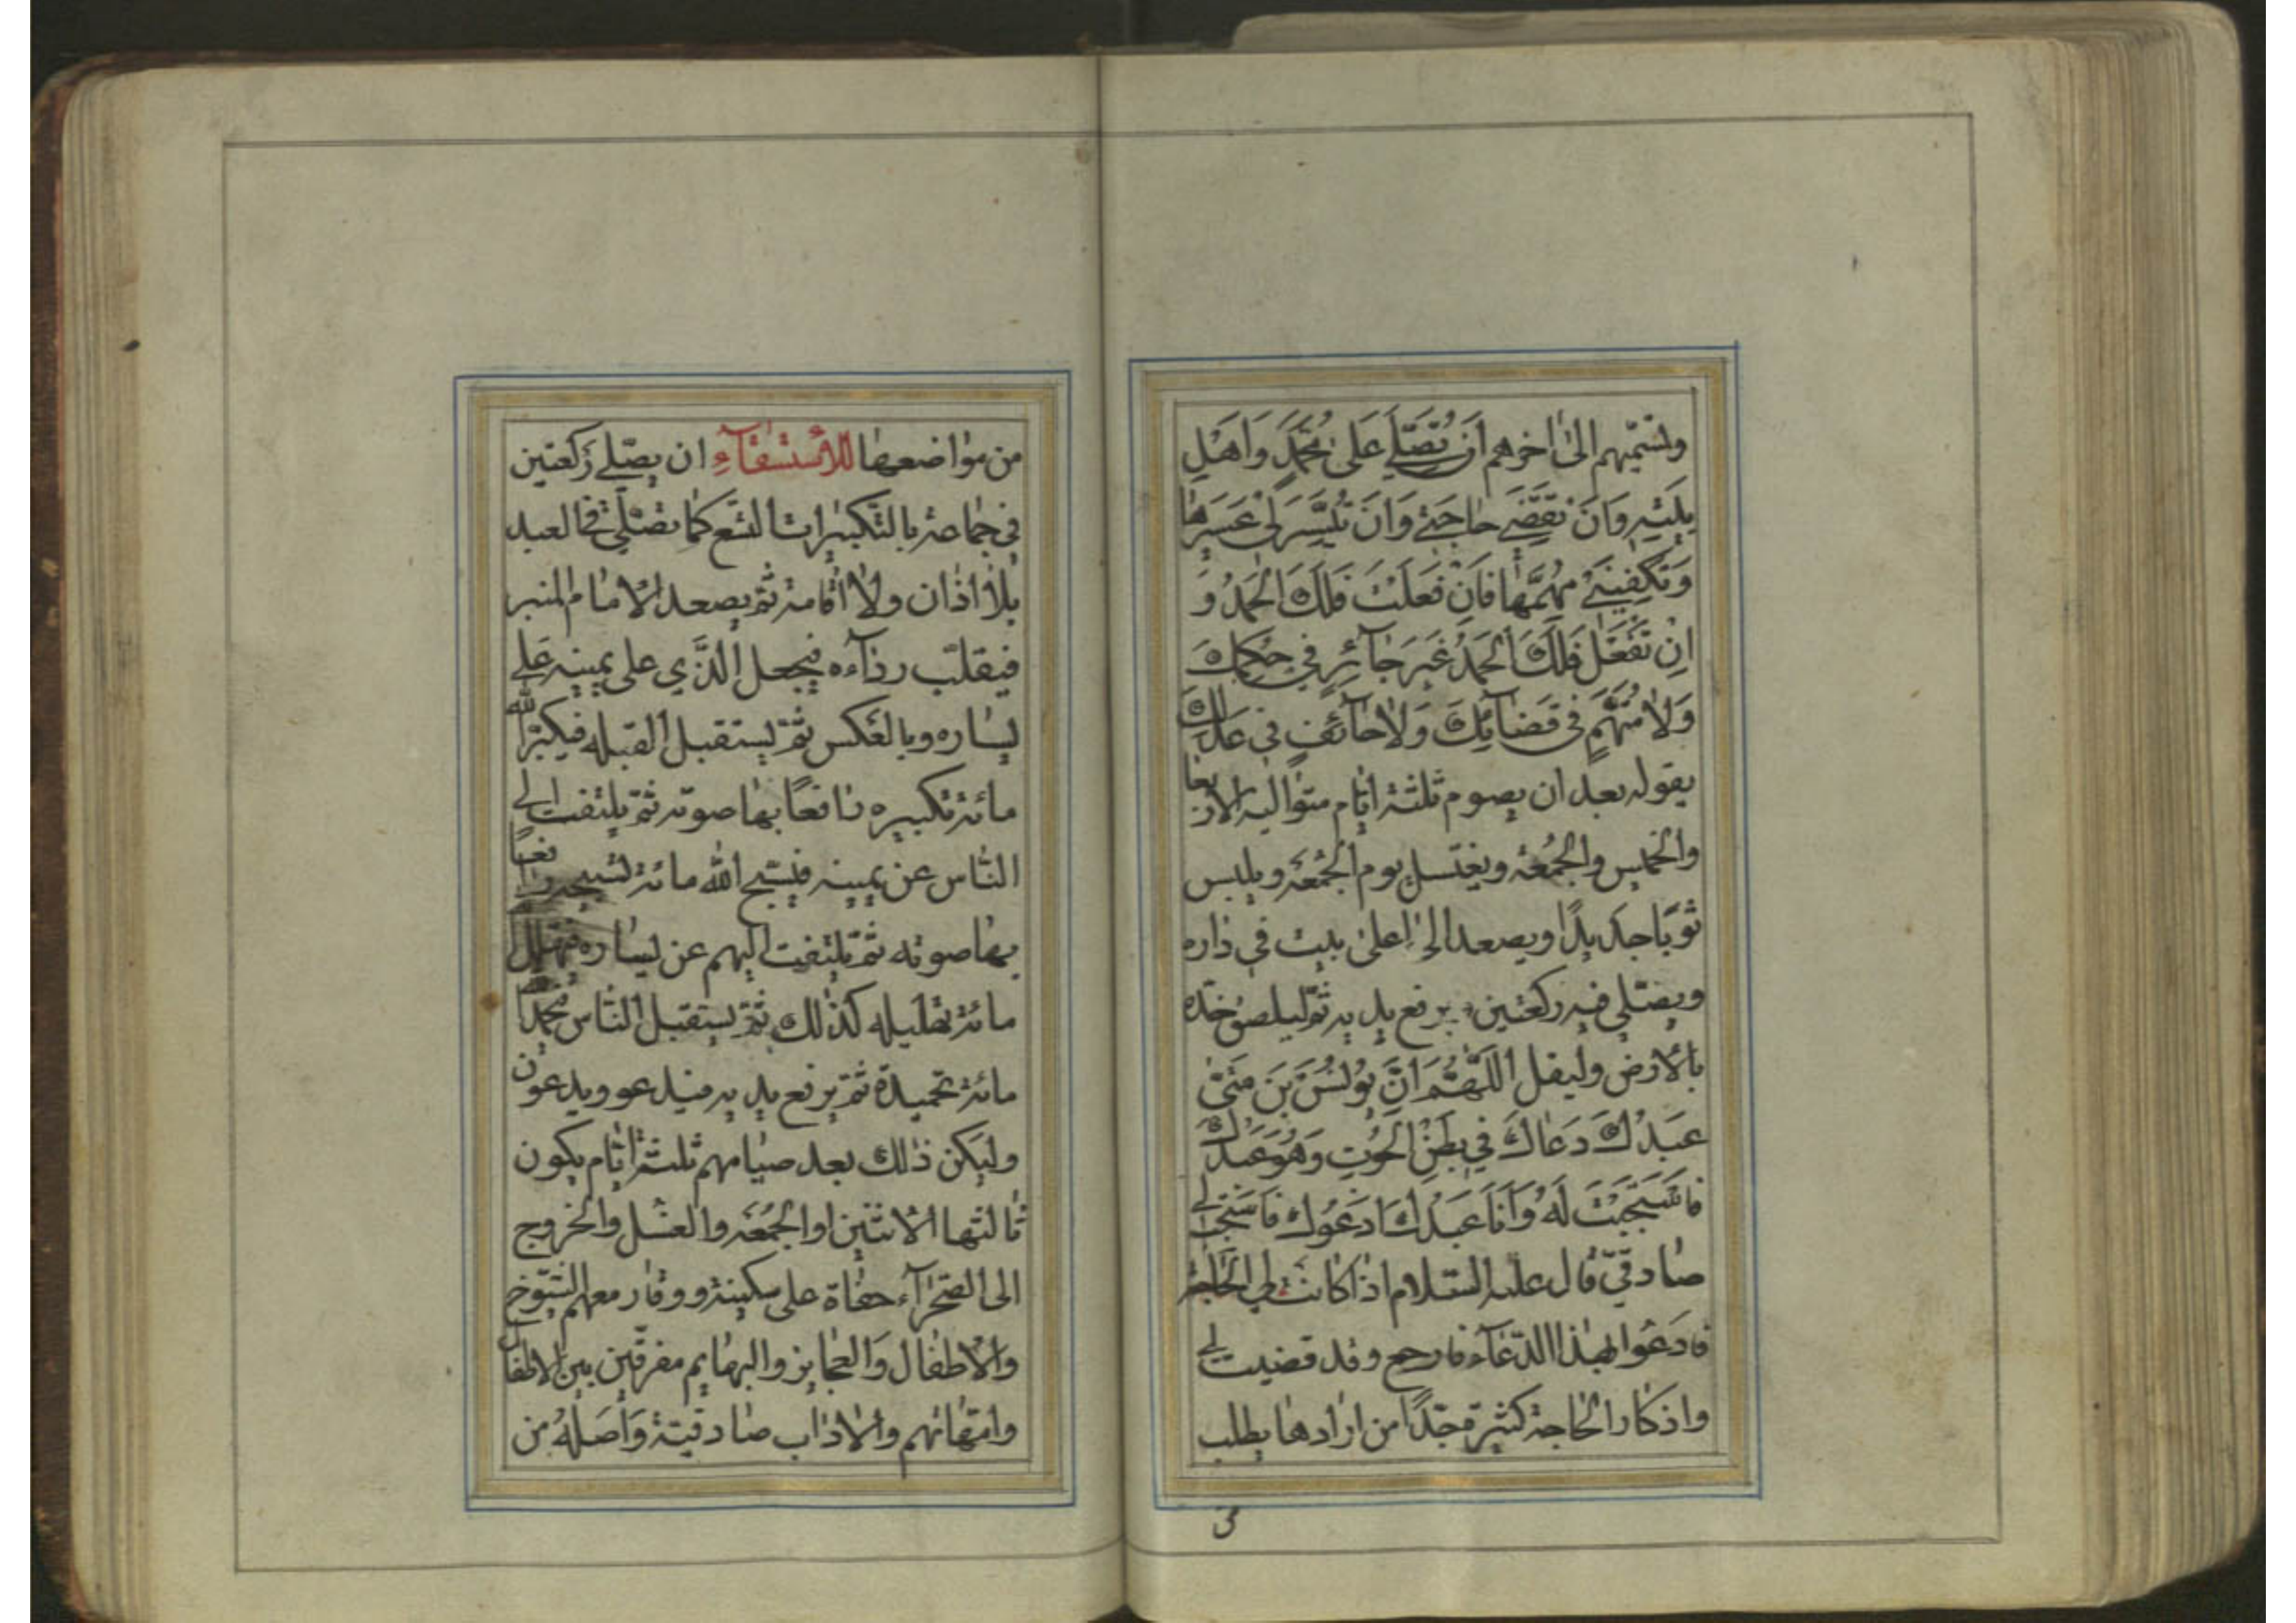 وتسمّيهم الى اخرهم اَن تُصَلّيَ عَلى مُحَمَّدٍ وَاَهْلِ
بَيْتِهِ وَاَنْ تَقْضِيَ حاجَتي وَاَنْ تُيَسِّرَ لي عَسيرَها
وَتَكْفِيَني مُهِمَّها فَاِنْ فَعَلْتَ فَلَكَ الْحَمْدُ وَ
اِنْ تَفْعَلْ فَلَكَ الْحَمْدُ غَيْرَ جآئِرٍ في حُكْمِكَ
وَلا مُتَّهَمٍ في قَضآئِكَ وَلا حآئِفٍ في عَدْلِكَ
يقوله بعد ان يصوم ثلثة ايّام متوالية الاربعا
والخميس والجُمُعة ويغتسل يوم الجُمُعَة ويلبس
ثوبًا جديدًا ويصعد الى اعلى بيت في داره
ويصلّي فيه ركعتين يرفع يديه ثمّ ليلصق خدّه
بالارض وليقل اللّهُمَّ اِنَّ يُونُسَ بْنَ مَتّى
عَبْدُكَ دَعاكَ في بَطْنِ الْحُوتِ وَهُوَ عَبْدُكَ
فَاسْتَجَبْتَ لَهُ وَاَنَا عَبْدُكَ اَدْعُوكَ فَاسْتَجِبْ لي
صادقيّ قال عليه السّلام اذا كانت لي الحاجة
فادعوا بهذا الدّعآء فارجع وقد قضيت لي
واذكار الحاجة كثيرة جدًّا من ارادها يطلب
من
من مواضعها للاستسقآءِ ان يصلّي ركعتين
في جماعة بالتكبيرات التسع كما تصلّي في العيد
بلا اذان ولا اقامة ثمّ يصعد الامام المنبر
فيقلّب ردآءه فيجعل الّذي على يمينه على
يساره وبالعكس ثمّ يستقبل القبله فيكبّر الله
مائة تكبيره رافعًا بها صوته ثمّ يلتفت الى
النّاس عن يمينه فيسبّح الله مائة تسبيحة رافعًا
بها صوته ثمّ يلتفت اليهم عن يساره فيهلّل
مائة تهليله كذلك ثمّ يستقبل النّاس فيحمد
مائة تحميدة ثمّ يرفع يديه فيدعو ويدعون
وليكن ذلك بعد صيامهم ثلثة ايّام يكون
ثالثها الاثنين او الجُمُعَه والغسل والخروج
الى الصحرآء حفاة على سكينة ووقار معهم الشّيوخ
والاطفال وَالعجايز والبهايم مفرقين بين الاطفال
وامّهاتهم والاداب صادقيّة وَاَصْلُهُ من